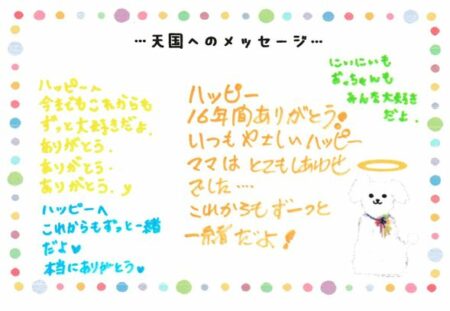 …天国へのメッセージ…
ハッピーへ
今までもこれからも
ずっと大好きだよ.
ありがとう.
ありがとう.
ありがとう.
ハッピーへ
これからもずっと一緒
だよ♥
本当にありがとう♥
ハッピー
16年間ありがとう
いつもやさしいハッピー
ママはとてもしあわせ
でした….
これからもずーっと
一緒だよ!
にぃにぃも
ちゃんも
みんな大好き
だよ.